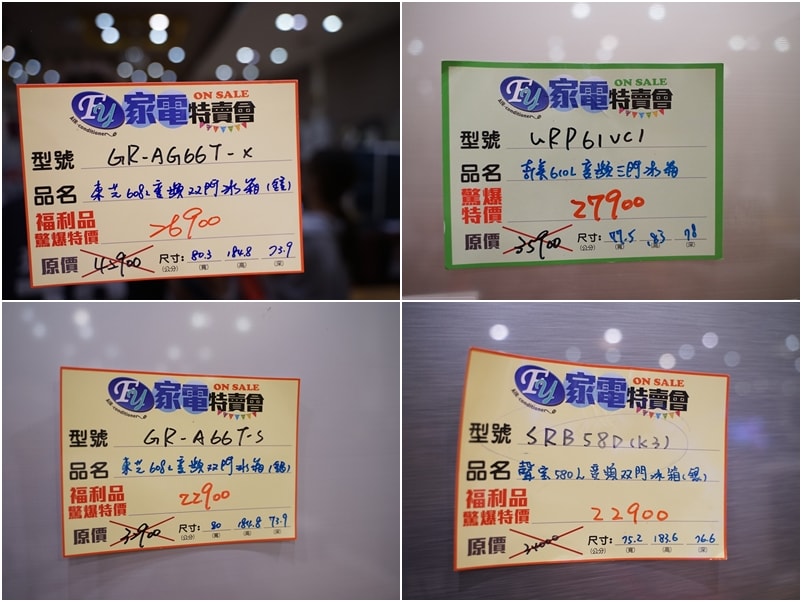 FY 家電特賣會 ON SALE
Air-conditioner
型號 GR-AG66T-X
品名 東芝608L變頻双門冰箱(鏡)
福利品
驚爆特價 26900
原價 42900 尺寸: 80.3 184.8 73.9
(公分) (寬) (高) (深)
FY 家電特賣會 ON SALE
Air-conditioner
型號 URP61VC1
品名 奇美610L變頻三門冰箱
驚爆
特價 27900
原價 35900 尺寸: 77.5 183 78
(公分) (寬) (高) (深)
FY 家電特賣會 ON SALE
Air-conditioner
型號 GR-A66T-S
品名 東芝608L變頻双門冰箱(銀)
福利品
驚爆特價 22900
原價 尺寸: 80 184.8 73.9
(公分) (寬) (高) (深)
FY 家電特賣會 ON SALE
Air-conditioner
型號 SRB58D(K3)
品名 聲寶580L變頻双門冰箱(銀)
福利品
驚爆特價 22900
原價 34000 尺寸: 75.2 183.6 76.6
(公分) (寬) (高) (深)